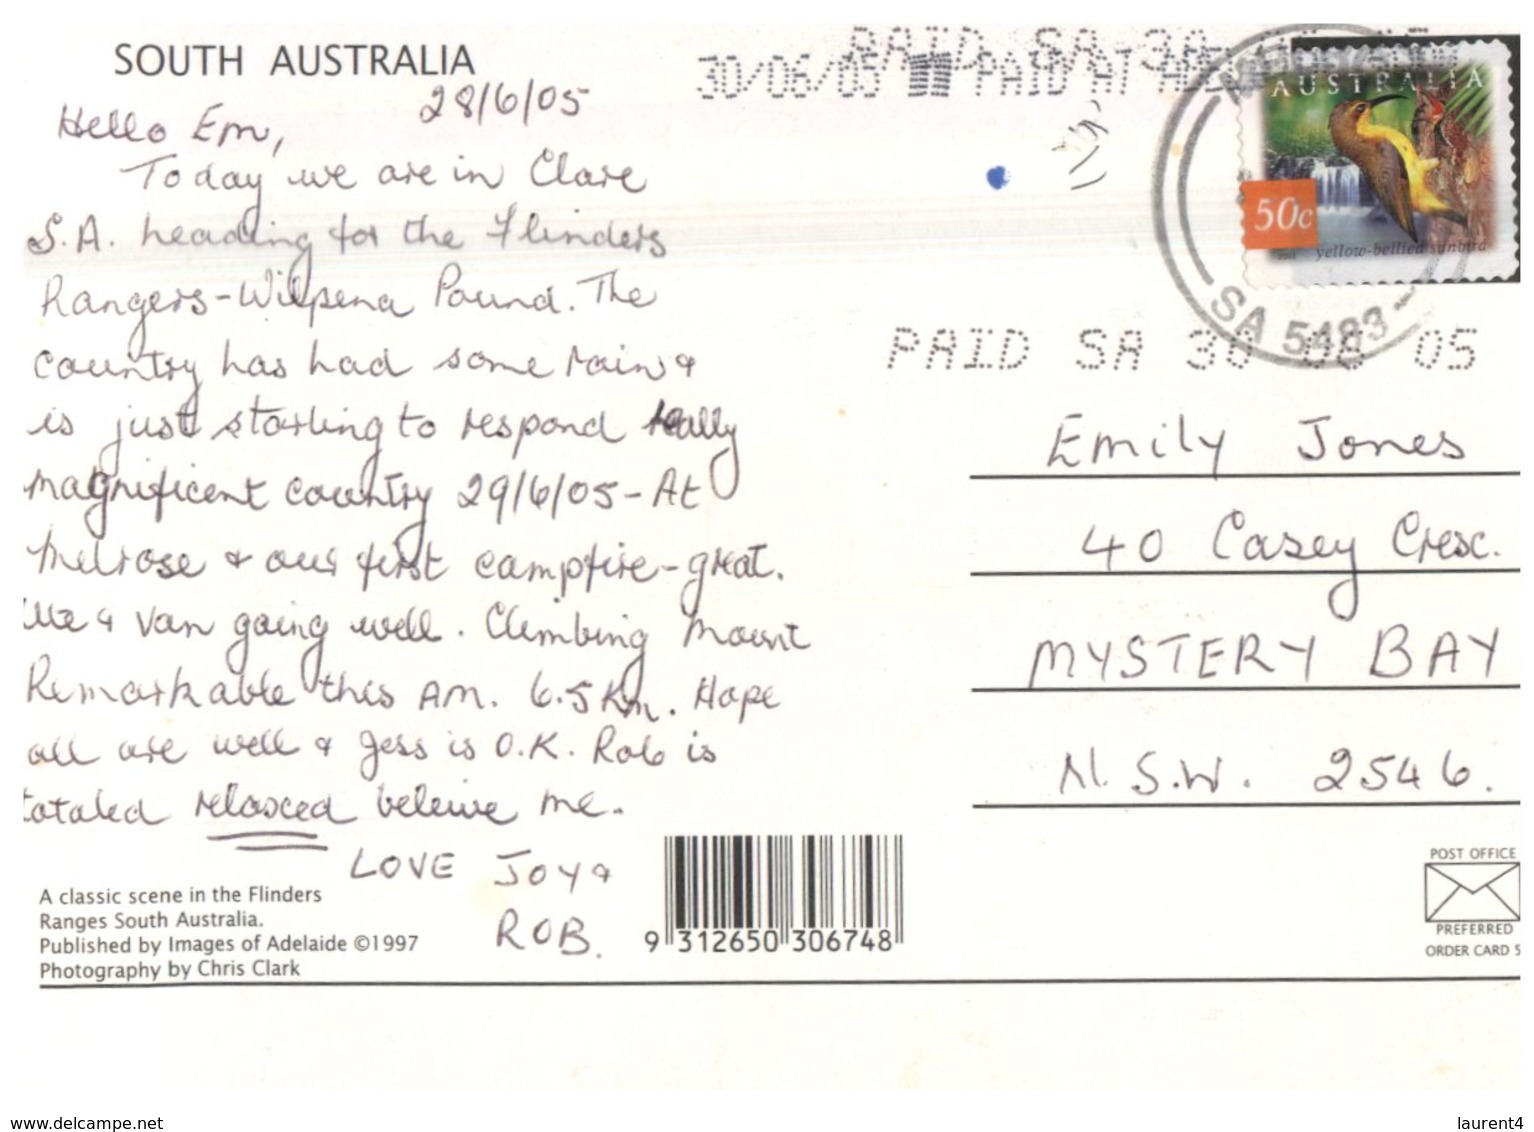 SOUTH AUSTRALIA
28/6/05
Hello Em,
Today we are in Clare
S.A. heading for the Flinders
Rangers - Wilpena Pound. The
country has had some rain &
is just starting to respond really
magnificent country 29/6/05 - At
Melrose & our first campfire - great.
Us & van going well. Climbing Mount
Remarkable this AM. 6.5 Km. Hope
all are well & Jess is O.K. Rob is
totaled relaxed beleive me.
LOVE JOY &
ROB.
A classic scene in the Flinders
Ranges South Australia.
Published by Images of Adelaide ©1997
Photography by Chris Clark
9 312650 306748
PAID SA 30
30/06/05 PAID AT
AUSTRALIA
50c
yellow-bellied sunbird
SA 5483
PAID SA 30 05
Emily Jones
40 Casey Cresc.
MYSTERY BAY
N.S.W. 2546.
POST OFFICE
PREFERRED
ORDER CARD 5
www.delcampe.net
laurent4